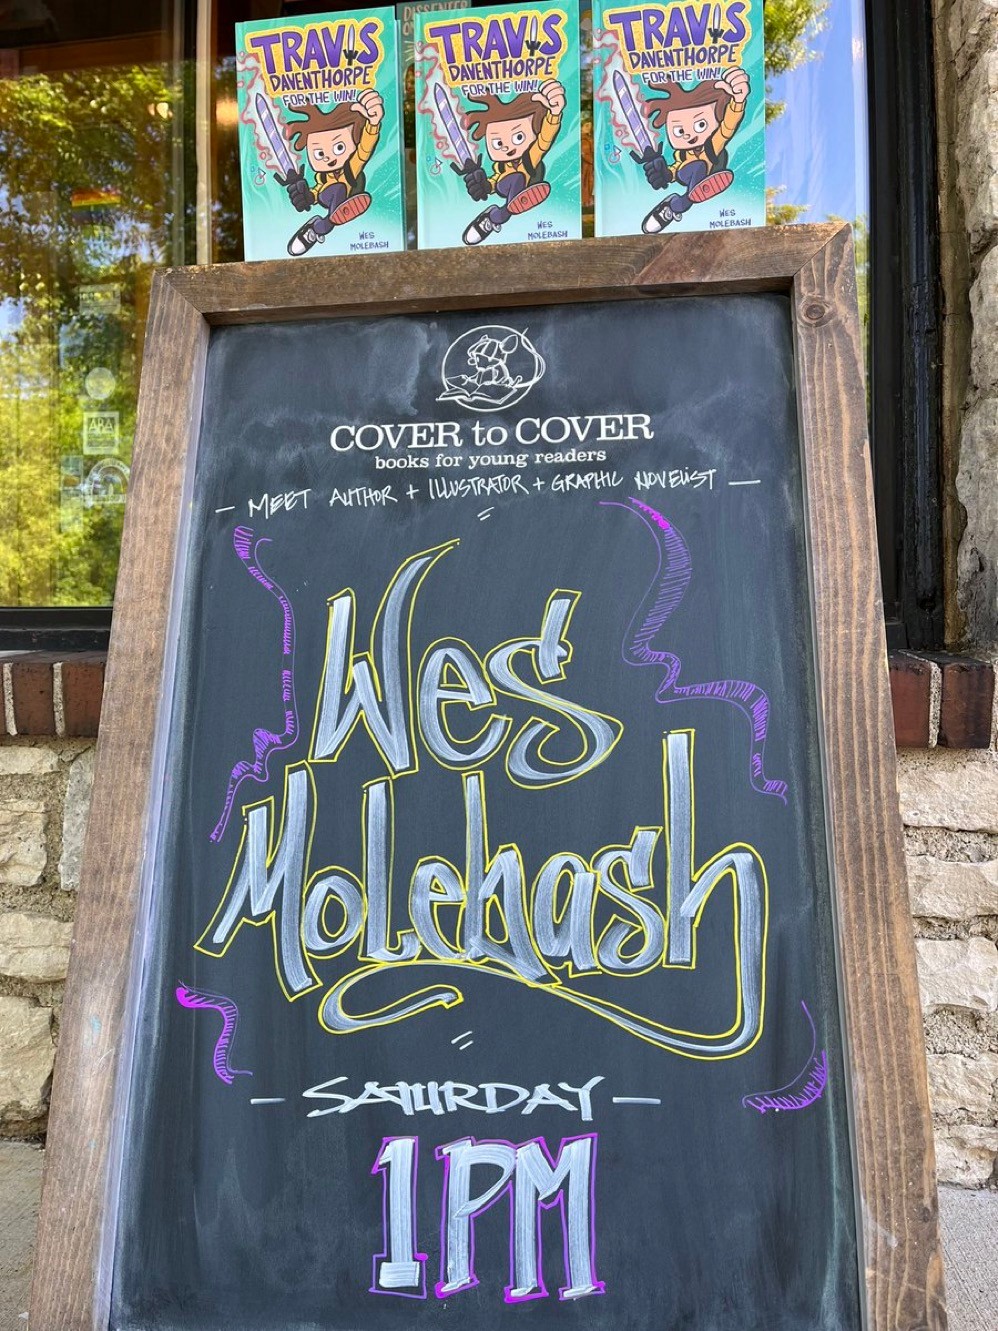 DISSENTER
TRAVIS
DAVENTHORPE
FOR THE WIN!
WES
MOLEBASH
TRAVIS
DAVENTHORPE
FOR THE WIN!
WES
MOLEBASH
TRAVIS
DAVENTHORPE
FOR THE WIN!
WES
MOLEBASH
ABA
COVER to COVER
books for young readers
— MEET AUTHOR + ILLUSTRATOR + GRAPHIC NOVELIST —
Wes
Molebash
— SATURDAY —
1PM